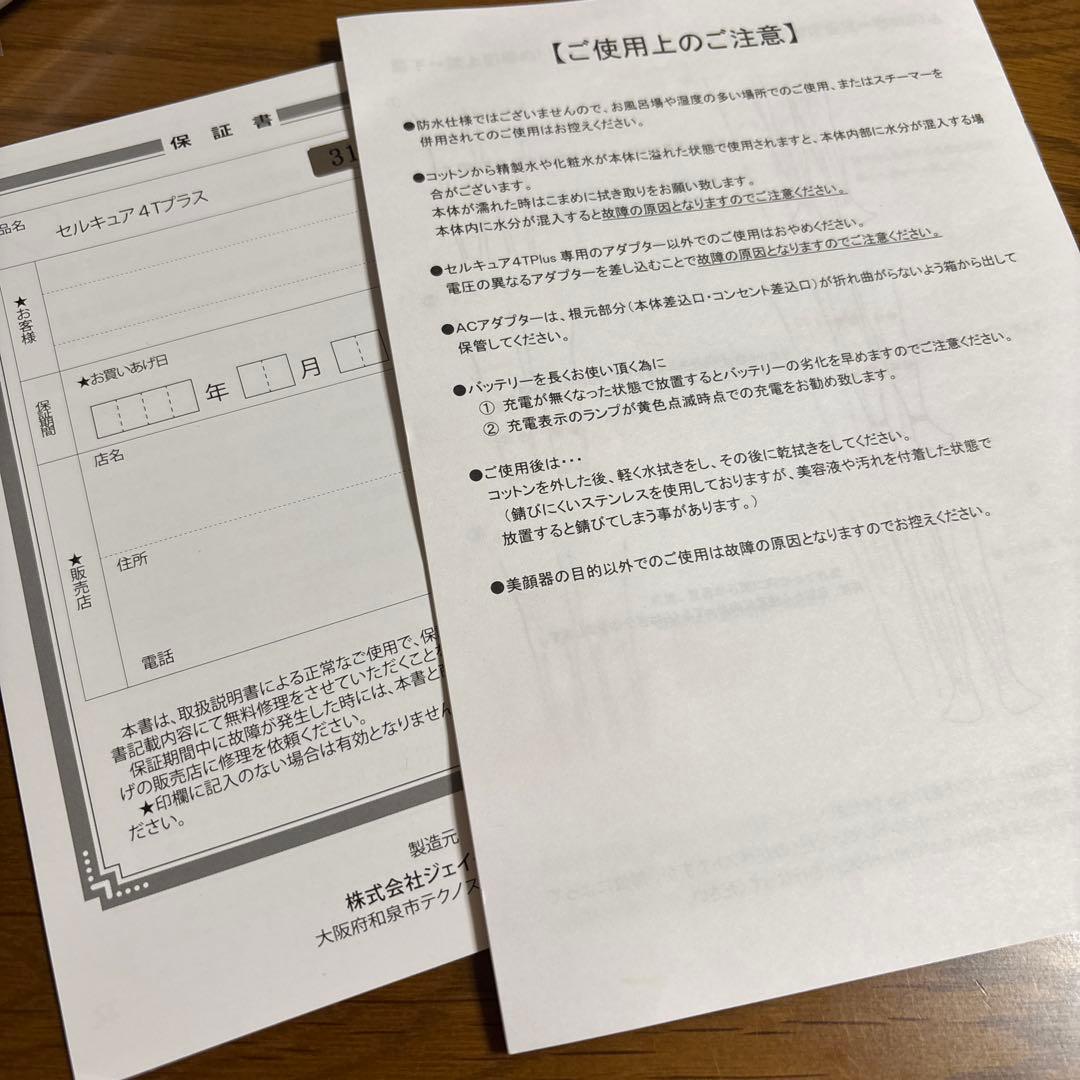 【ご使用上のご注意】
●防水仕様ではございませんので、お風呂場や湿度の多い場所でのご使用、またはスチーマーを
併用されてのご使用はお控えください。
●コットンから精製水や化粧水が本体に溢れた状態で使用されますと、本体内部に水分が混入する場
合がございます。
本体が濡れた時はこまめに拭き取りをお願い致します。
本体内に水分が混入すると故障の原因となりますのでご注意ください。
●セルキュア4TPlus 専用のアダプター以外でのご使用はおやめください。
電圧の異なるアダプターを差し込むことで故障の原因となりますのでご注意ください。
●ACアダプターは、根元部分(本体差込口・コンセント差込口)が折れ曲がらないよう箱から出して
保管してください。
●バッテリーを長くお使い頂く為に
① 充電が無くなった状態で放置するとバッテリーの劣化を早めますのでご注意ください。
② 充電表示のランプが黄色点滅時点での充電をお勧め致します。
●ご使用後は・・・
コットンを外した後、軽く水拭きをし、その後に乾拭きをしてください。
(錆びにくいステンレスを使用しておりますが、美容液や汚れを付着した状態で
放置すると錆びてしまう事があります。)
●美顔器の目的以外でのご使用は故障の原因となりますのでお控えください。
保証書
31
品名
セルキュア4Tプラス
★お客様
保証期間
★お買いあげ日
年 月
★販売店
店名
住所
電話
本書は、取扱説明書による正常なご使用で、保
書記載内容にて無料修理をさせていただくこと
保証期間中に故障が発生した時には、本書と
げの販売店に修理を依頼ください。
★印欄に記入のない場合は有効となりません
ださい。
製造元
株式会社ジェイ
大阪府和泉市テクノス